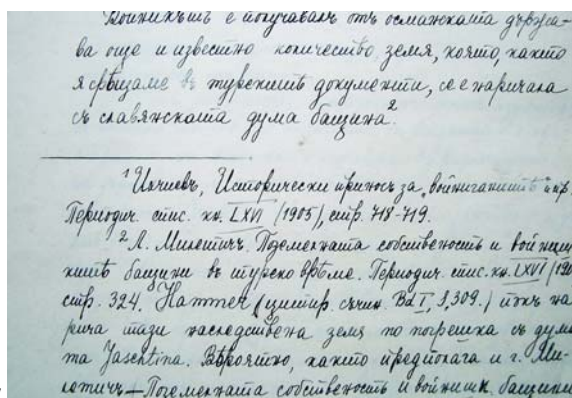 Войникътъ е получавалъ отъ османската държа-
ва още и известно количество земя, която, както
я срѣщаме въ турскитѣ документи, се е наричала
съ славянската дума бащина².
¹ Ихчиевъ, Исторически приносъ за „войниганитѣ“ и пр.
Периодич. спис. кн. LXVI /1905/, стр. 718-719.
² Л. Милетичъ. Поземелната собственость и войниш-
китѣ бащини въ турско врѣме. Периодич. спис. кн. LXVI /190
стр. 324. Hammer (цитир. съчин. Bd I, S, 309.) пъкъ на
рича тази наследствена земя по погрешка съ дума
та Jaschtina. Вѣроятно, както предполага и г. Ми-
летичъ — Поземелната собственость и войнишк. бащини